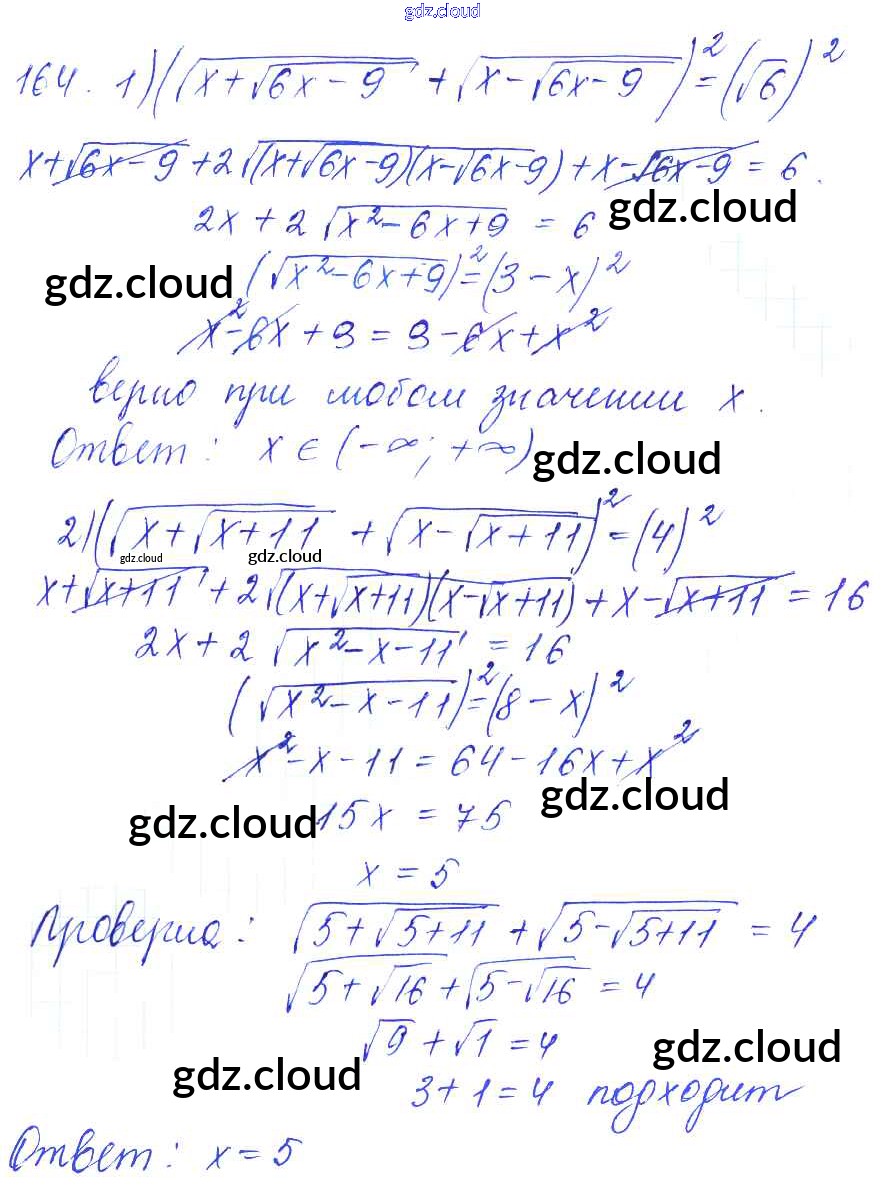 gdz.cloud
164. 1) (√(x+√(6x-9)) + √(x-√(6x-9)))² = (√6)²
x+√(6x-9) + 2√((x+√(6x-9))(x-√(6x-9))) + x-√(6x-9) = 6.
gdz.cloud
2x + 2√(x²-6x+9) = 6
gdz.cloud
(√(x²-6x+9))² = (3-x)²
x²-6x+9 = 9-6x+x²
верно при любом значении x.
Ответ: x ∈ (-∞; +∞)
gdz.cloud
2) (√(x+√(x+11)) + √(x-√(x+11)))² = (4)²
gdz.cloud gdz.cloud
x+√(x+11) + 2√((x+√(x+11))(x-√(x+11))) + x-√(x+11) = 16
2x + 2√(x²-x-11) = 16
(√(x²-x-11))² = (8-x)²
x²-x-11 = 64-16x+x²
gdz.cloud
gdz.cloud
15x = 75
x = 5
Проверка: √(5+√(5+11)) + √(5-√(5+11)) = 4
√(5+√16) + √(5-√16) = 4
√9 + √1 = 4
gdz.cloud
gdz.cloud
3+1=4 подходит
Ответ: x = 5